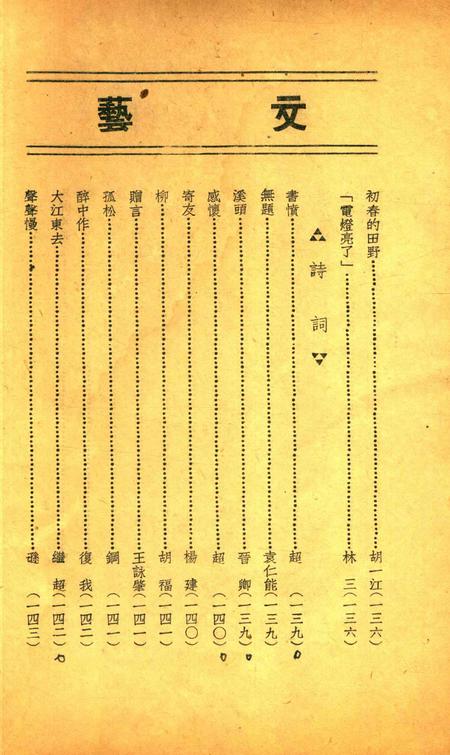 文藝
初春的田野……胡一江(一三六)
「電燈亮了」……林　三(一三六)
詩詞
書憤……超(一三九)
無題……袁仁能(一三九)
溪頭……晉　卿(一三九)
感懷……超(一四〇)
寄友……楊　建(一四〇)
柳……胡　福(一四一)
贈言……王詠肇(一四一)
孤松……鋼(一四一)
醉中作……復　我(一四二)
大江東去……繼　超(一四二)
聲聲慢……(一四三)